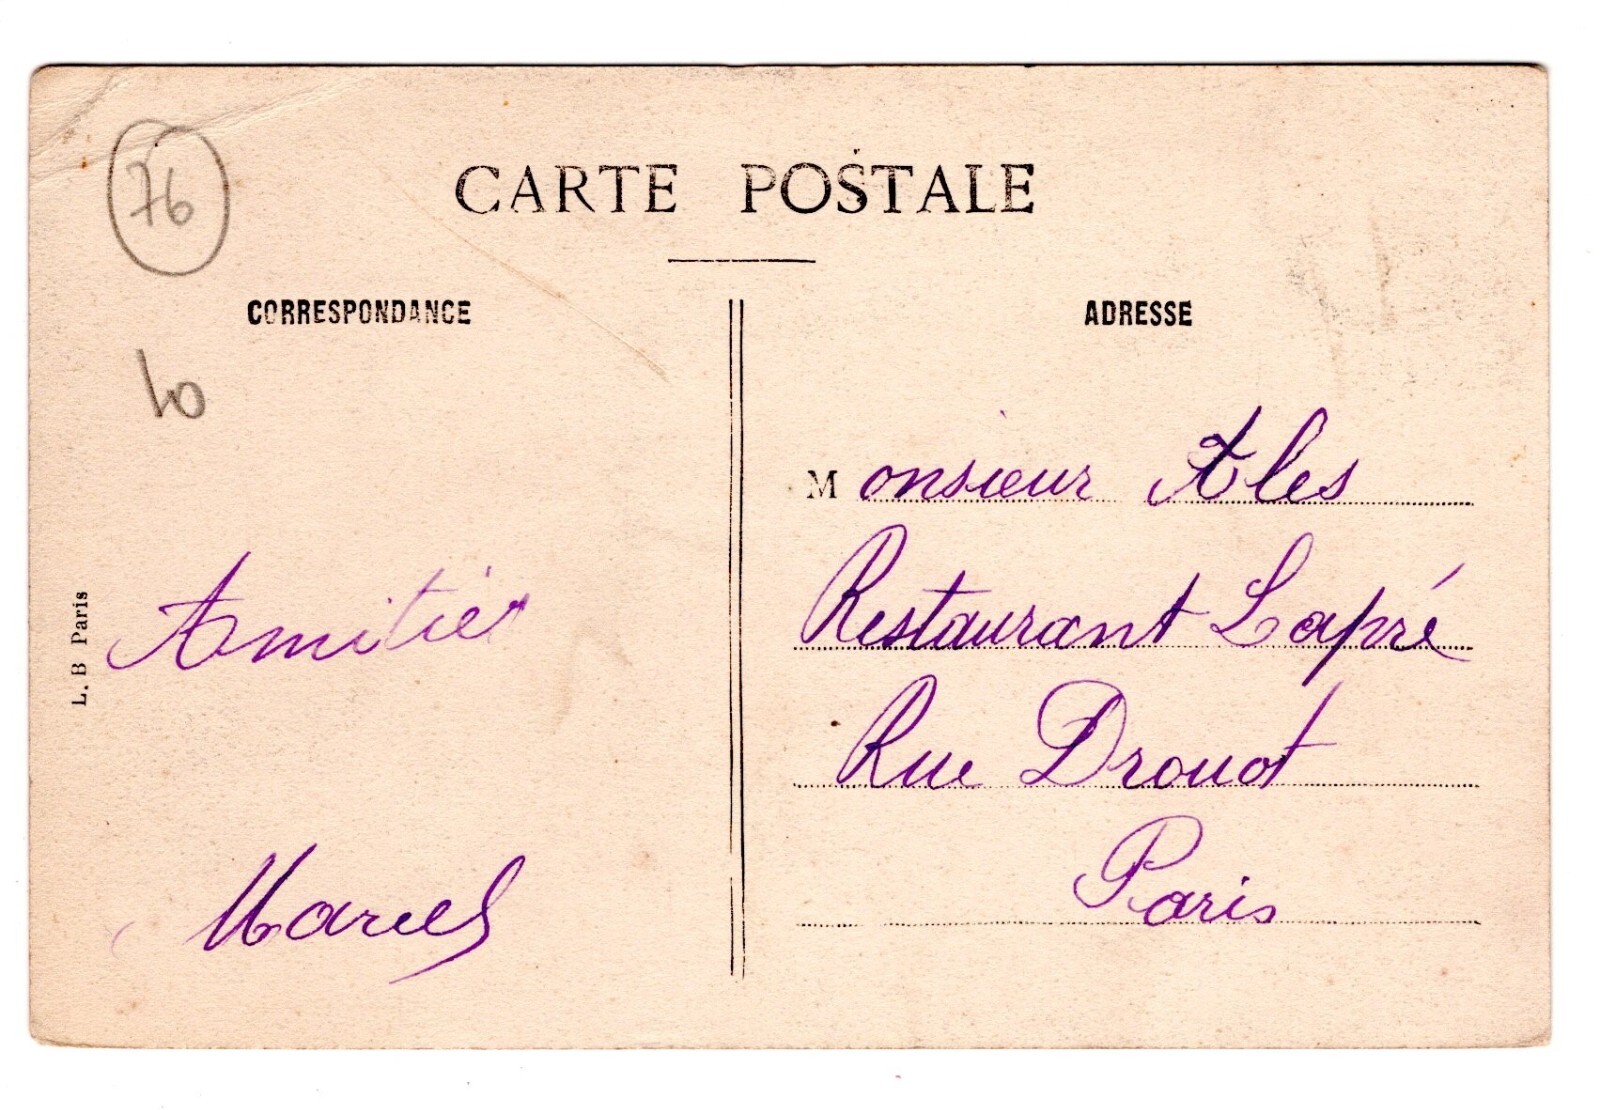 76
CARTE POSTALE
CORRESPONDANCE
10
Amitiés
Marcel
L. B Paris
ADRESSE
Monsieur Ales
Restaurant Lapré
Rue Drouot
Paris